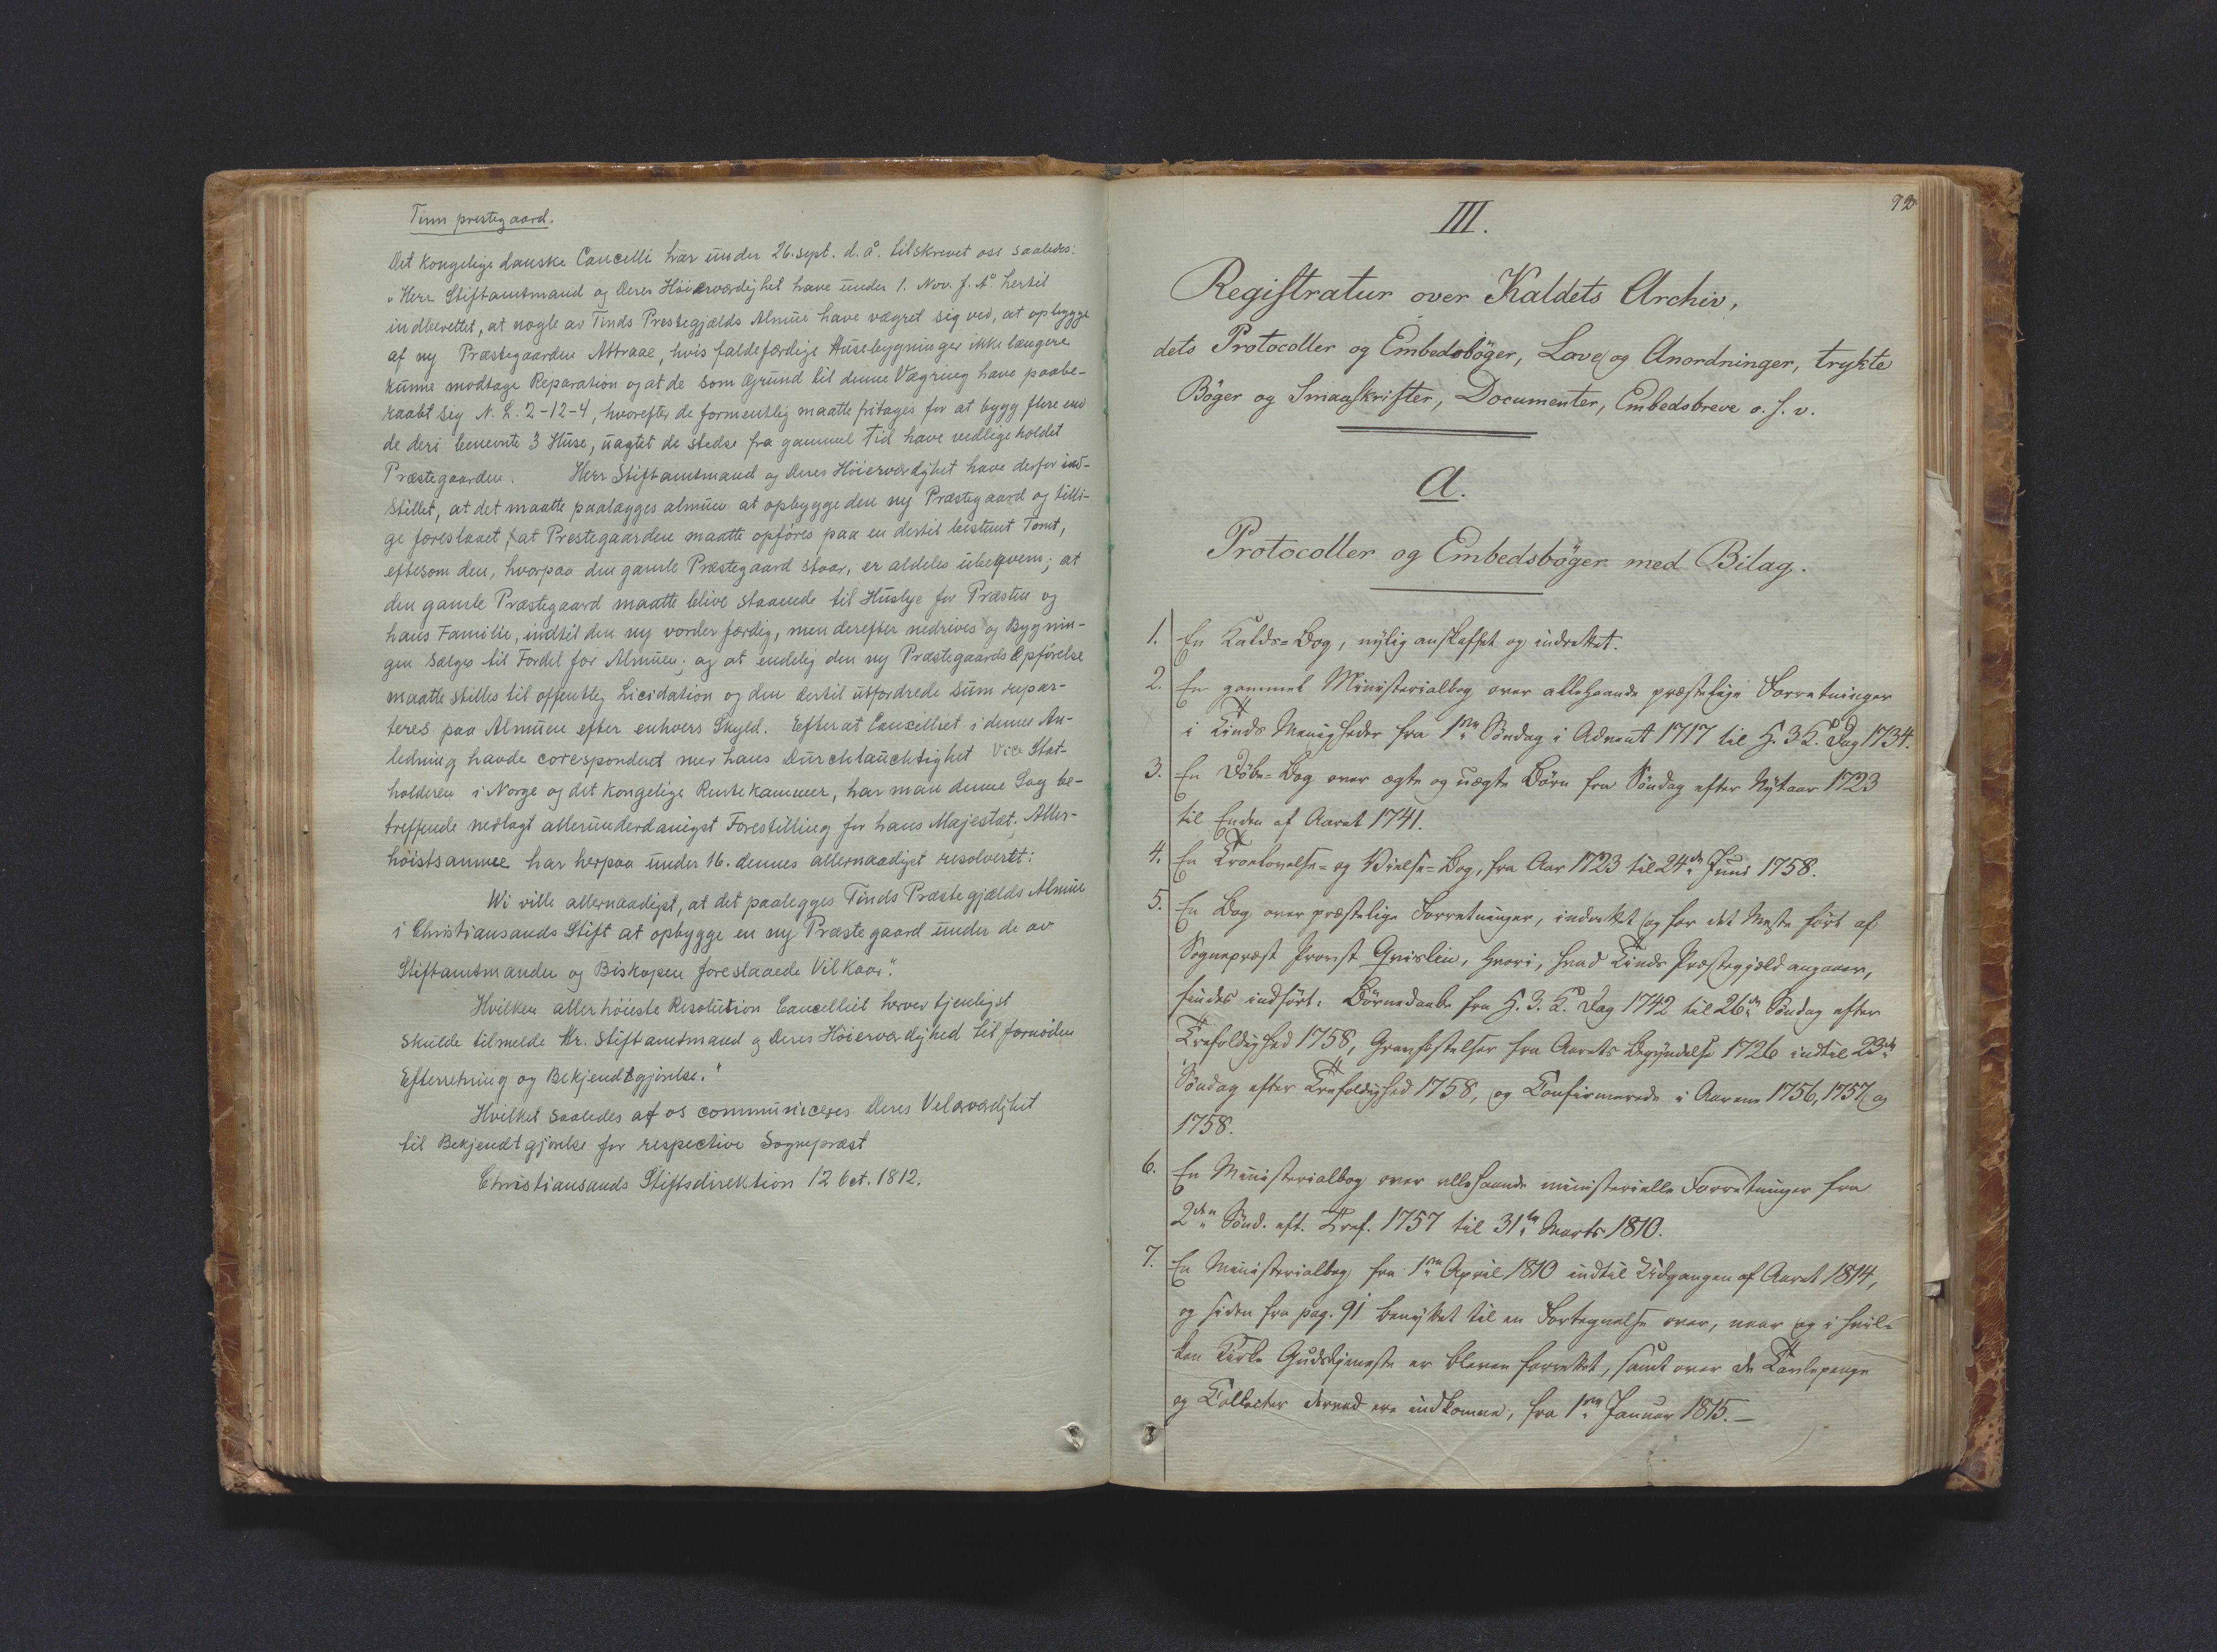 Tinn prestegaard.
Det kongelige danske Cancelli har under 26. sept. d. å. tilskrevet oss saaledes:
„Herr Stiftamtmand og Deres Høiærværdighet have under 1. Nov. f. A. hertil
indberettet, at nogle av Tinds Prestegjælds Almue have vægret sig ved, at opbygge
af ny Præstegaarden Attraae, hvis faldefærdige Husebygninger ikke længere
kunne modtage Reparation og at de som Grund til denne Vægring have paabe-
raabt sig N. L. 2-12-4, hvorefter de formentlig maatte fritages for at bygg flere end
de deri benevnte 3 Huse, uagtet de stedse fra gammel Tid have vedligeholdet
Præstegaarden. Herr Stiftamtmand og Deres Höiærværdighet have derfor ind-
stillet, at det maatte paalægges almuen at opbygge den ny Præstegaard og tilli-
ge foreslaaet, at Prestegaarden maatte opføres paa en dertil bestemt Tomt,
eftesom den, hvorpaa den gamle Præstegaard staar, er aldeles ubeqvem; at
den gamle Præstegaard maatte blive staaende til Huslye for Præsten og
hans Familie, indtil den ny vorder færdig, men derefter nedrives og Bygnin-
gen sælges til Fordel for Almuen; og at endelig den ny Præstegaards Opførelse
maatte stilles til offentlig Licidation og den dertil utfordrede Sum repar-
teres paa Almuen efter enhvers Skyld. Efter at Cancelliet i denne An-
ledning havde coresponderet mer hans Durchlauchtighet Vice Stat-
holderen i Norge og det kongelige Rentekammer, har man denne Sag be-
treffende nedlagt allerunderdanigst Forestilling for hans Majestæt. Aller-
höistsamme har herpaa under 16. dennes allernaadigst resolveret:
Wi ville allernaadigst, at det paalegges Tinds Præstegjælds Almue
i Christiansands Stift at opbygge en ny Præstegaard under de av
Stiftamtmanden og Biskopen foreslaaede Vilkaar".
Hvilken allerhöieste Resolution Cancelliet herved tjenligst
skulde tilmelde Hr. Stiftamtmand og Deres Höiærværdighed til fornöden
Efterretning og Bekjendtgjørelse."
Hvilket saaledes af os communiceres Deres Velærværdighet
til Bekjendtgjørelse for respective Sognepræst
Christiansands Stiftsdirektion 12 Oct. 1812.
92
III.
Registratur over Kaldets Archiv,
dets Protocoller og Embedsbøger, Love og Anordninger, trykte
Bøger og Smaaskrifter, Documenter, Embedsbreve o. s. v.
A.
Protocoller og Embedsbøger med Bilag.
1. En Kalds-Bog, nylig anskaffet og indrettet.
2. En gammel Ministerialbog over allehaande præstelige Forretninger
i Tinds Menigheder fra 1ste Söndag i Advent 1717 til H. 3 K. Dag 1734.
3. En Döbe-Bog over ægte og uægte Börn fra Söndag efter Nytaar 1723
til Enden af Aaret 1741.
4. En Trolovelse- og Vielse-Bog, fra Aar 1723 til 24de Juni 1758.
5. En Bog over præstelige Forretninger, indrettet og for det Meste fört af
Sognepræst Provst Qvislin, hvori, hvad Tinds Præstegjæld angaaer,
findes indfört: Börnedaabe fra H. 3. K. Dag 1742 til 26de Söndag efter
Trefoldighed 1758, Gravfæstelser fra Aarets Begyndelse 1726 indtil 23de
Söndag efter Trefoldighed 1758, og Confirmerede i Aarene 1756, 1757 og
1758.
6. En Ministerialbog over allehaande ministerielle Forretninger fra
2den Sönd. eft. Tref. 1757 til 31te Marts 1810.
7. En Ministerialbog fra 1ste April 1810 indtil Udgangen af Aaret 1814,
og siden fra pag. 91 benyttet til en Fortegnelse over, naar og i hvil-
ken Kirke Gudstjeneste er bleven forrettet, samt over de Tavlepenge
og Collecter derved ere indkomne, fra 1ste Januar 1815.—